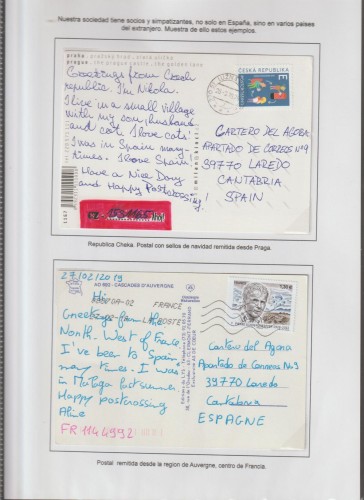 Nuestra sociedad tiene socios y simpatizantes, no solo en España, sino en varios países
del extranjero. Muestra de ello estos ejemplos.
praha
prague
ČESKÁ REPUBLIKA
E
Greetings from Czech
republic I'm Nikola.
I live in a small village
with my son, husband
and cat. I love cats!
I was in Spain many
times. I love Spain.
Have a Nice Day
and Happy Postcrossing!
CARTERO DEL AGORA
APARTADO DE CORREOS Nº9
39770 LAREDO
CANTABRIA
SPAIN
República Cheka. Postal con sellos de navidad remitida desde Praga.
27/02/2019
CASCADES D'AUVERGNE
FRANCE
LA POSTE
Hi
Greetings from the
North-West of France
I've been to Spain
many times. I was
in Malaga last summer.
Happy postcrossing
Aline
FR 1144992
Cartero del Agora
Apartado de Correos Nº9
39770 Laredo
Cantabria
ESPAGNE
Postal remitida desde la region de Auvergne, centro de Francia.